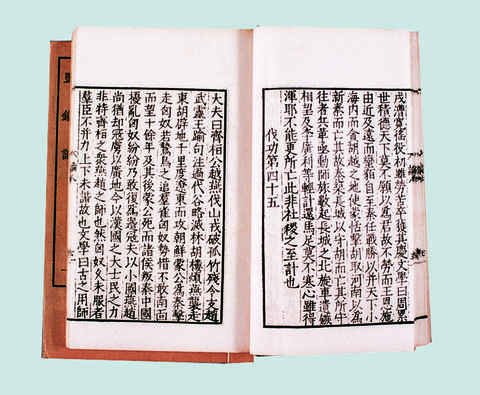 戍漕寬徭役初雖勞苦卒獲其慶文學曰周累
世積德天下莫不願以爲君故不勞而王恩施
由近及遠而蠻貊自至秦任戰勝以并天下小
海內而貪胡越之地使蒙恬擊胡取河南以爲
新秦而亡其故秦築長城以守胡而亡其所守
往者兵革亟動師旅數起長城之北旋車遺鏃
相望及李廣利等輕計還馬足莫不寒心雖得
渾耶不能更所亡此非社稷之至計也
伐功第四十五
大夫曰齊桓公越燕伐山戎破孤竹殘令支趙
武靈王踰句注過代谷略滅林胡樓煩燕襲走
東胡辟地千里度遼東而攻朝鮮蒙公爲秦擊
走匈奴若鷙鳥之追羣雀匈奴勢慴不敢南面
而望十餘年及其後蒙公死而諸侯叛秦中國
擾亂匈奴紛紛乃敢復爲邊寇夫以小國燕趙
尚猶却寇虜以廣地今以漢國之大士民之力
非特齊桓之衆燕趙之師也然匈奴久未服者
羣臣不并力上下未諧故也文學曰古之用師
鹽鐵論